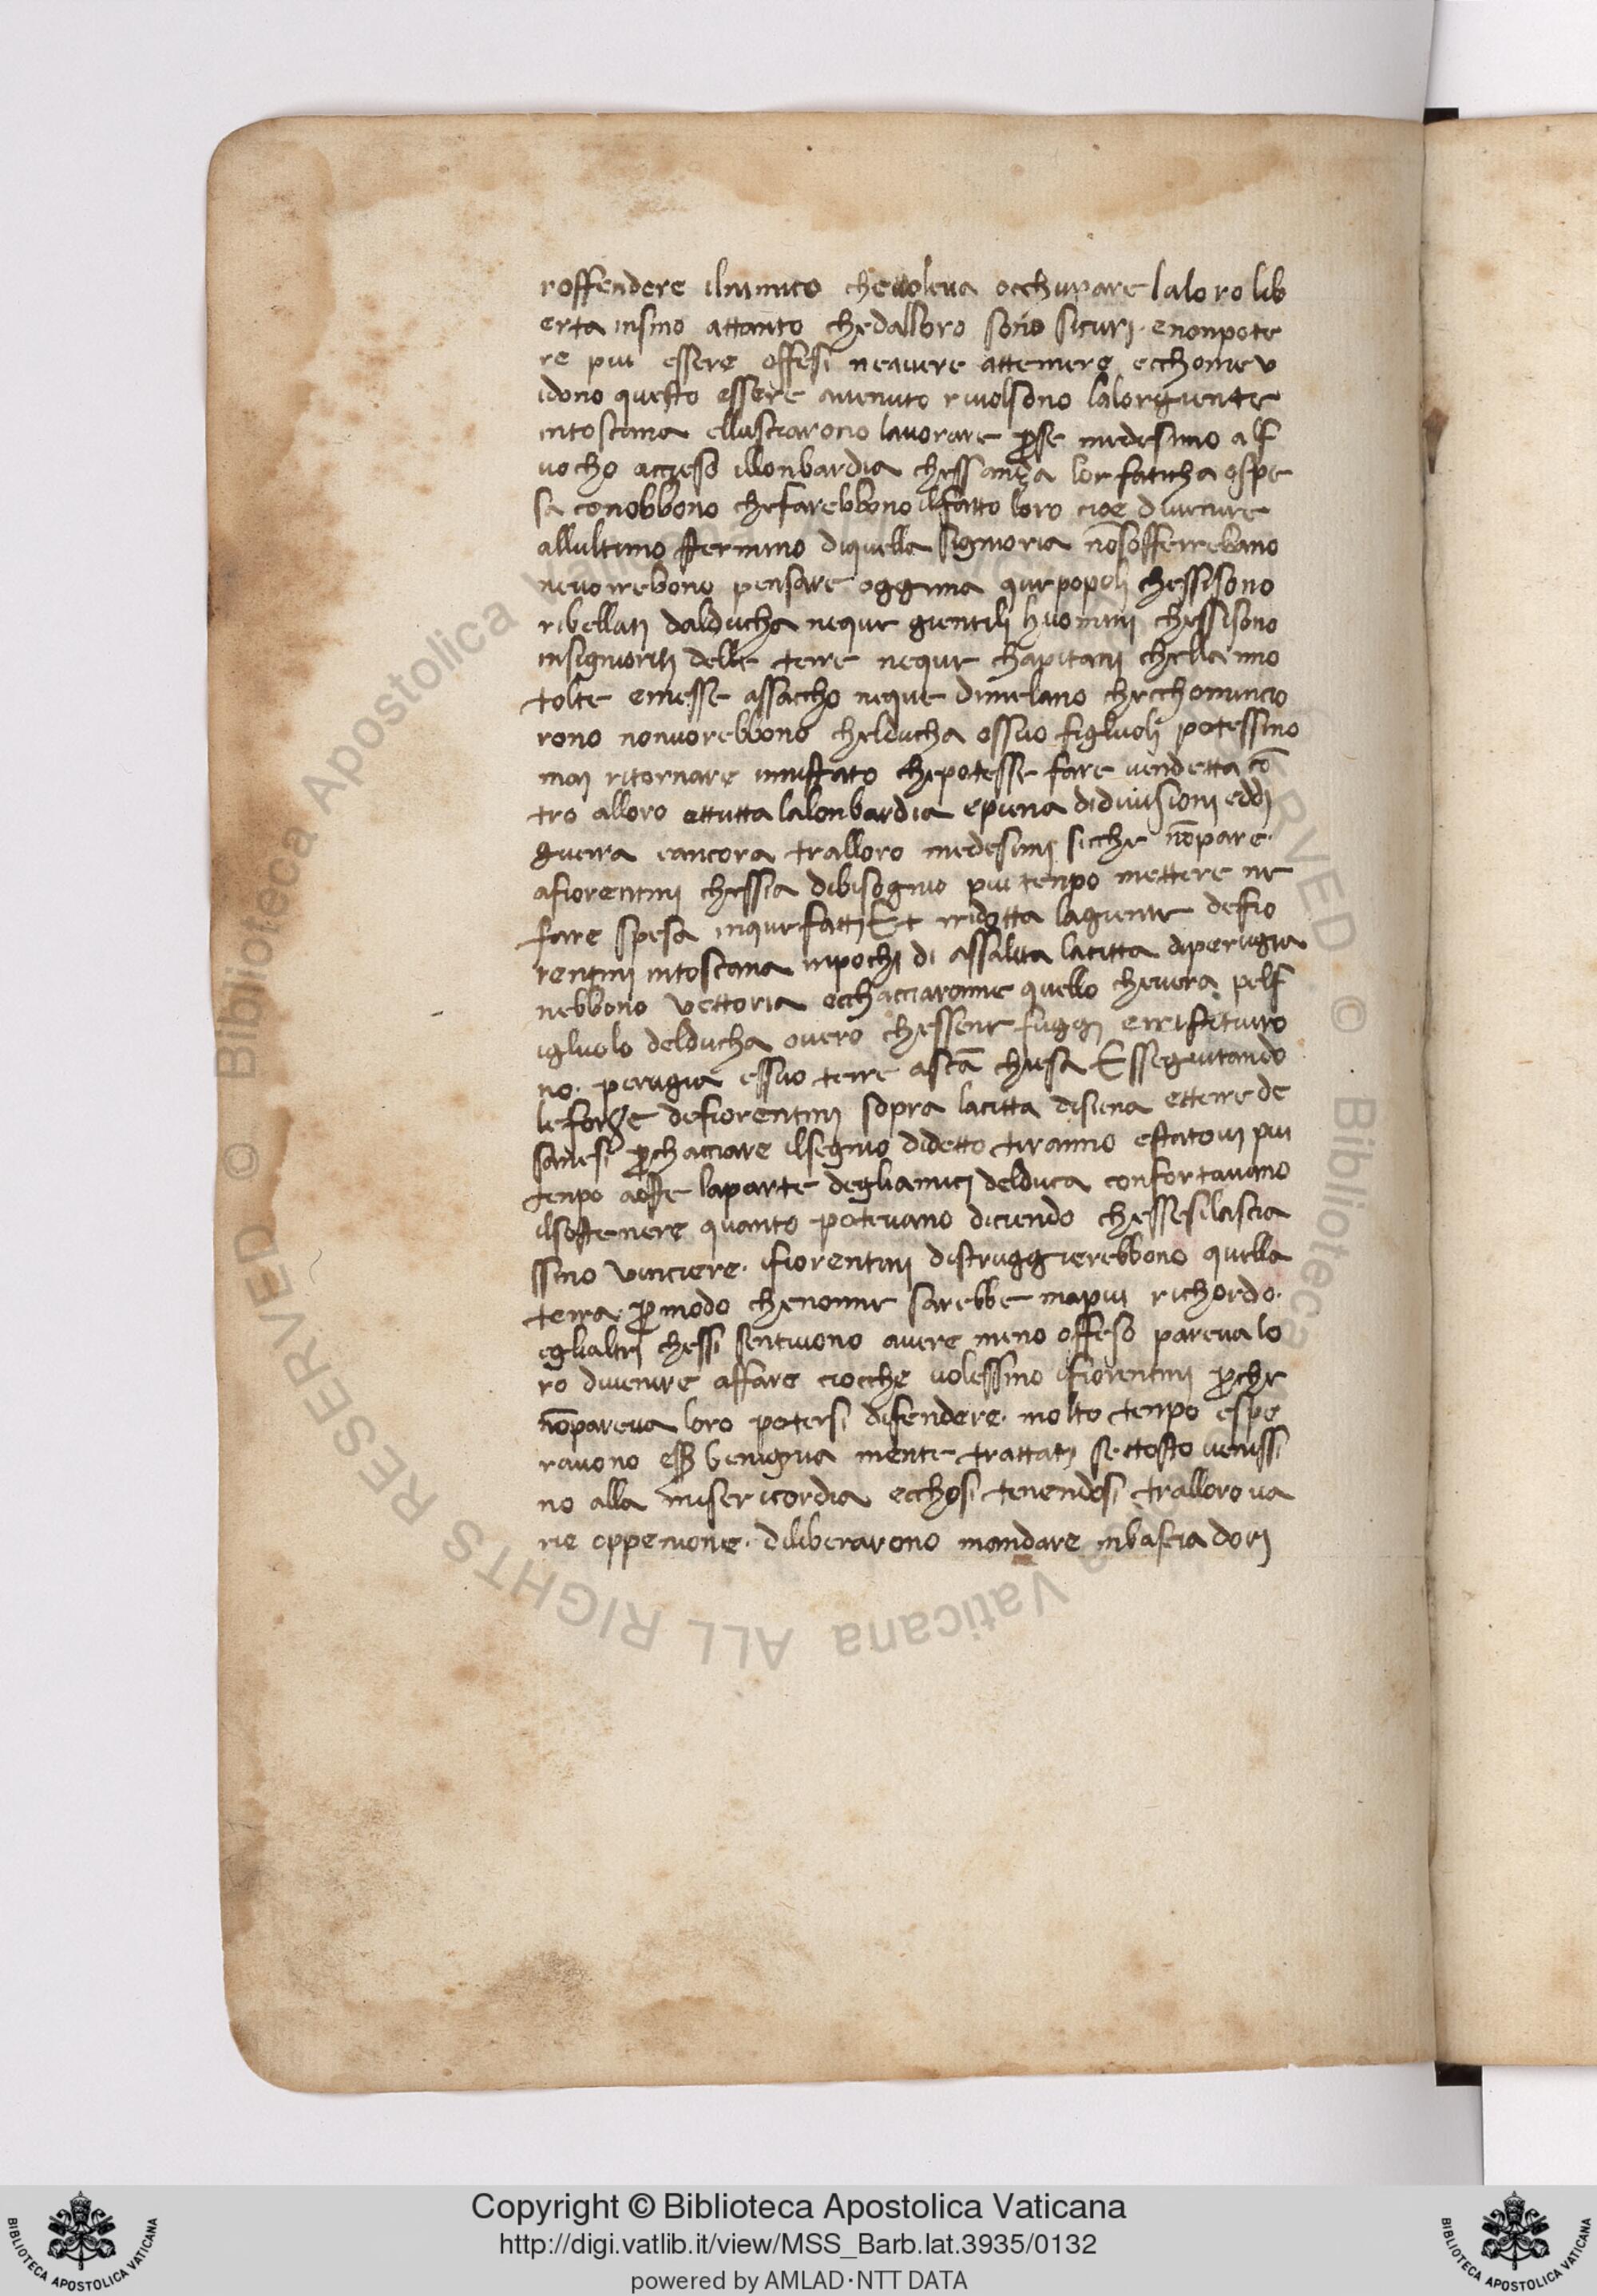 roffendere ilnimico chevoleva occhupare laloro lib
erta insino attanto chedalloro sono sicuri · enonpote
re piu essere offesi neavere attemere ecchome v
idono questo essere avenuto rivolsono lalorgiente
intoscana ellasciarono lavorare p se medesimo alf
uocho acceso illonbardia chessança lor faticha ospe
sa conobbono chefarebbono ilfatto loro cioe divenire
allultimo stermino diquella signioria nō sofferrebano
nevorrebono pensare oggima que popoli chessisono
ribellati dalducha neque gientili huomini chessisono
insignioriti delle terre neque chapitani chellanno
tolte emesse assaccho neque dimelano checchomincio
rono nonvorebbono chelducha ossuo figluoli potessino
mai ritornare innistato chepotesse fare vendetta cō
tro alloro ettutta lalonbardia epiena didivisioni eddi
guerra eancora tralloro medesimi sicche nōpare ·
afiorentini chessia dibisognio piu tenpo mettere ne
fare spesa inque fatti Et rridotta lagiente defio
rentini intoscana inpochi di assalita lacitta diperugia
nebbono vettoria ecchacciaronne quello chevera pelf
igluolo delducha overo chessene fuggi erristituiro
no · perugia essuo terre asctā chiesa Esseguitando
leforze defiorentini sopra lacitta disiena etterre de
sanesi p chacciare ilsegnio didetto tiranno estatovi piu
tenpo aoste laparte degliamici delduca confortavano
ilsostenere quanto potevano diciendo chessesilascia
ssino vinciere · ifiorentini distruggierebbono quella
terra p modo chenonne sarebbe mapiu richordo ·
eglialtri chessi sentivono avere meno offeso pareva lo
ro divenire affare ciocche volessino ifiorentini p che
nōpareva loro potersi difendere · molto tenpo espe
ravono eß benignia mente trattati se ttosto venissi
no alla misericordia ecchosi tenendosi tralloro va
rie oppenione · diliberarono mandare inbasciadori
Copyright © Biblioteca Apostolica Vaticana
http://digi.vatlib.it/view/MSS_Barb.lat.3935/0132
powered by AMLAD·NTT DATA
BIBLIOTECA APOSTOLICA VATICANA
BIBLIOTECA APOSTOLICA VATICANA